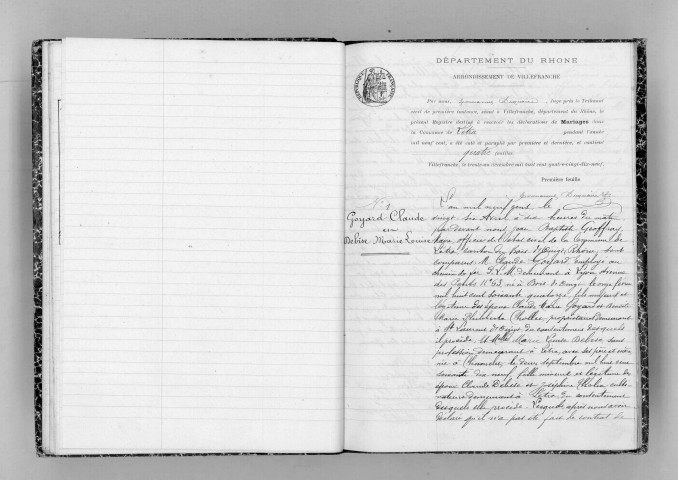 DÉPARTEMENT DU RHONE
ARRONDISSEMENT DE VILLEFRANCHE
Par nous, Juge près le Tribunal
civil de première instance, séant à Villefranche, département du Rhône, le
présent Registre destiné à recevoir les déclarations de Mariages dans
la Commune de Létra pendant l'année
mil neuf cent, a été coté et paraphé par première et dernière, et contient
quatre feuilles
Villefranche, le trente-un décembre mil huit cent quatre-vingt-dix-neuf.
Première feuille
N° 1
Goyard Claude
en
Debise Marie Louise
L'an mil neuf cent le
vingt six Avril à dix heures du matin
par devant nous Jean Baptiste Geoffray
Maire officier de l'état civil de la Commune de
Létra canton du Bois d'Oingt, Rhône, sont
comparus: M. Claude Goyard employé au
chemin de fer P.L.M demeurant à Lyon Avenue
des Ponts N° 53, né à Bois d'Oingt le onze
mil huit cent soixante quatorze fils majeur et
légitime des époux Claude Marie Goyard et
Marie Philiberte propriétaires demeurant
à St Laurent d'Oingt du consentement desquels
il procède et Melle Marie Louise Debise sans
profession demeurant à Létra, avec ses père et mère
née à le deux septembre mil huit cent
soixante dix neuf, fille mineure et légitime des
époux Claude Debise et Joséphine
demeurant à Létra du consentement
desquels elle procède. Lesquels après nous avoir
déclaré qu'il n'a pas été fait de contrat de